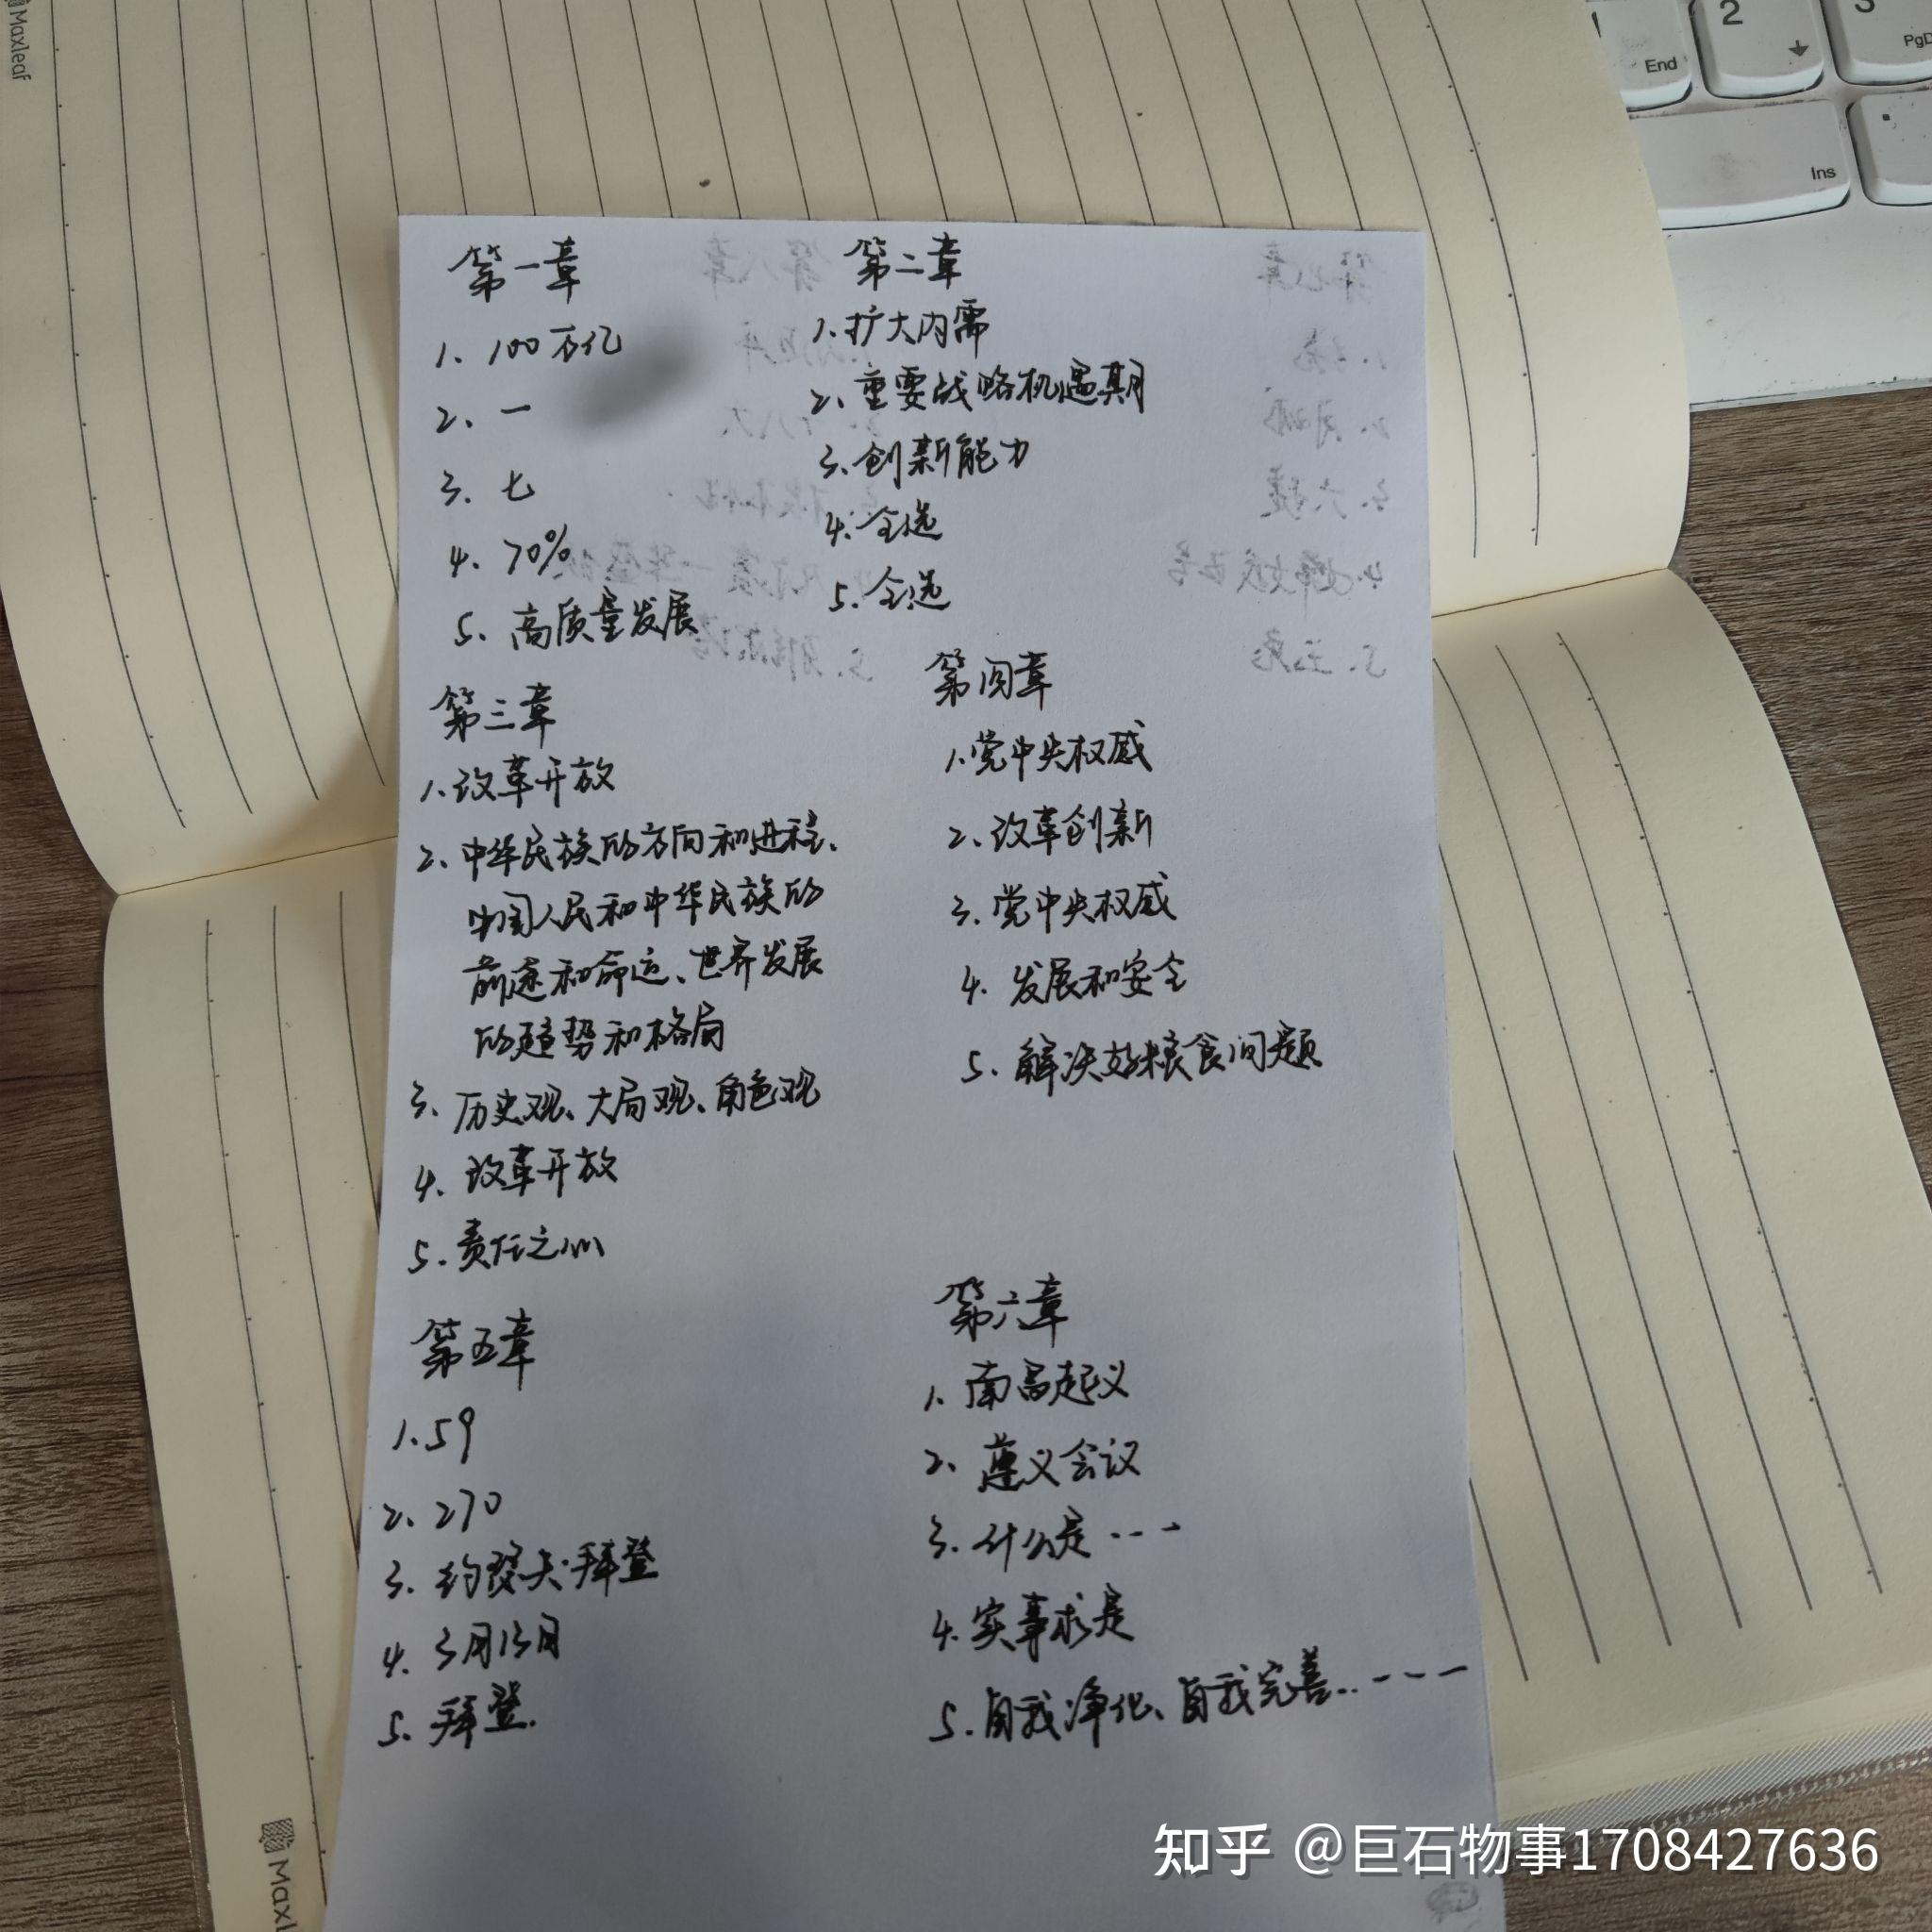 Maxleaf
2
3
End
PgD
Ins
第一章
1、100万亿
2、一
3、七
4、70%
5、高质量发展
第二章
1、扩大内需
2、重要战略机遇期
3、创新能力
4、全选
5、全选
第三章
1、改革开放
2、中华民族的方向和进程、
中国人民和中华民族的
前途和命运、世界发展
的趋势和格局
3、历史观、大局观、角色观
4、改革开放
5、责任之心
第四章
1、党中央权威
2、改革创新
3、党中央权威
4、发展和安全
5、解决好粮食问题
第五章
1.59
2、270
3、约瑟夫·拜登
4、3月13月
5、拜登.
第六章
1、南昌起义
2、遵义会议
3、什么是···
4、实事求是
5、自我净化、自我完善..---
知乎 @巨石物事1708427636
Maxl